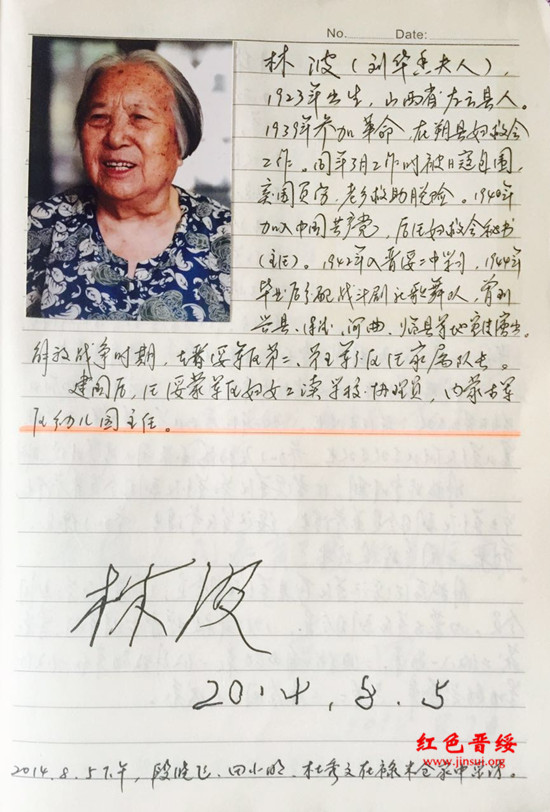 No. Date:
林波（刘华香夫人），
1923年出生，山西省左云县人。
1939年参加革命，在朔县妇救会
工作。同年3月工作时被日寇包围，
突围负伤，老乡救助脱险。1940年
加入中国共产党，后任妇救会秘书
（主任）。1942年入晋绥二中学习，1944年
毕业后分配战斗剧社歌舞队，曾到
兴县、保德、河曲、临县等地宣传演出。
解放战争时期，在晋绥军区第二、第五军分区任家属队长。
建国后，任绥蒙军区妇女工读学校协理员，内蒙古军
区幼儿园主任。
林波
2014.8.5
红色晋绥
www.jinsuj.org
2014.8.5下午，段晓飞、田小明、杜秀文在禄米仓家中采访。